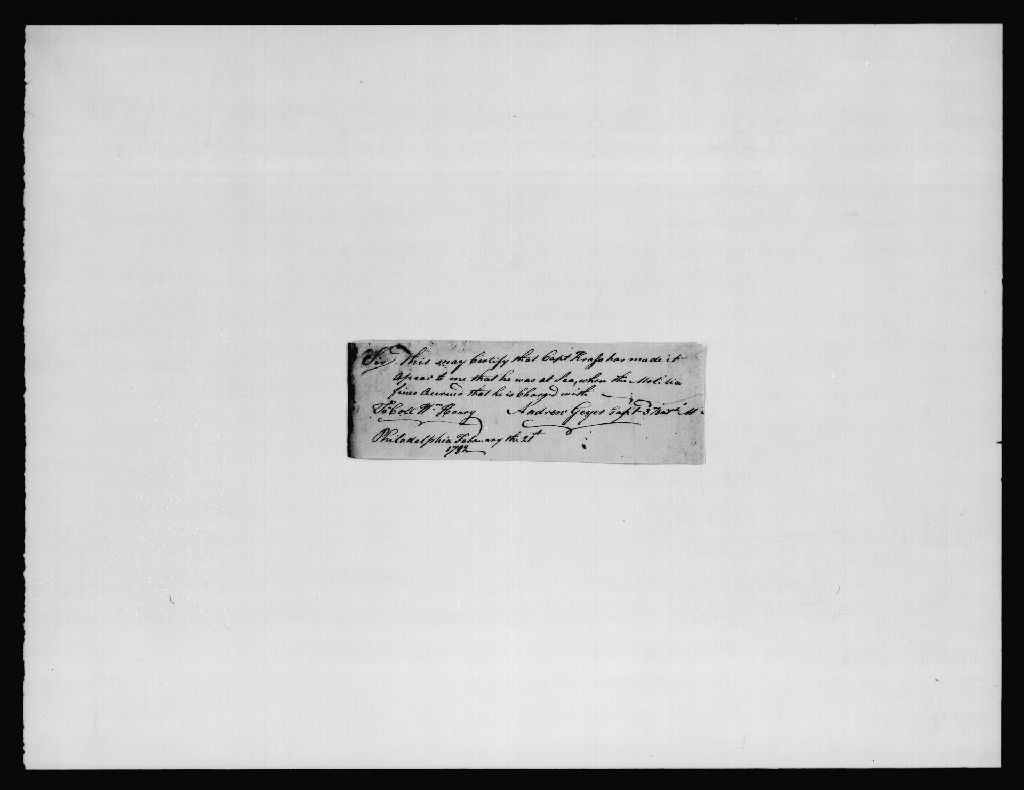 Sir, This may Certify that Capt Krass has made it
Apear to me that he was at Sea, when the Melitia
fines Accrued that he is Charged with
To Coll Wm Henry Andrew Geyer Capt 3
Philadelphia February the 21st
1782